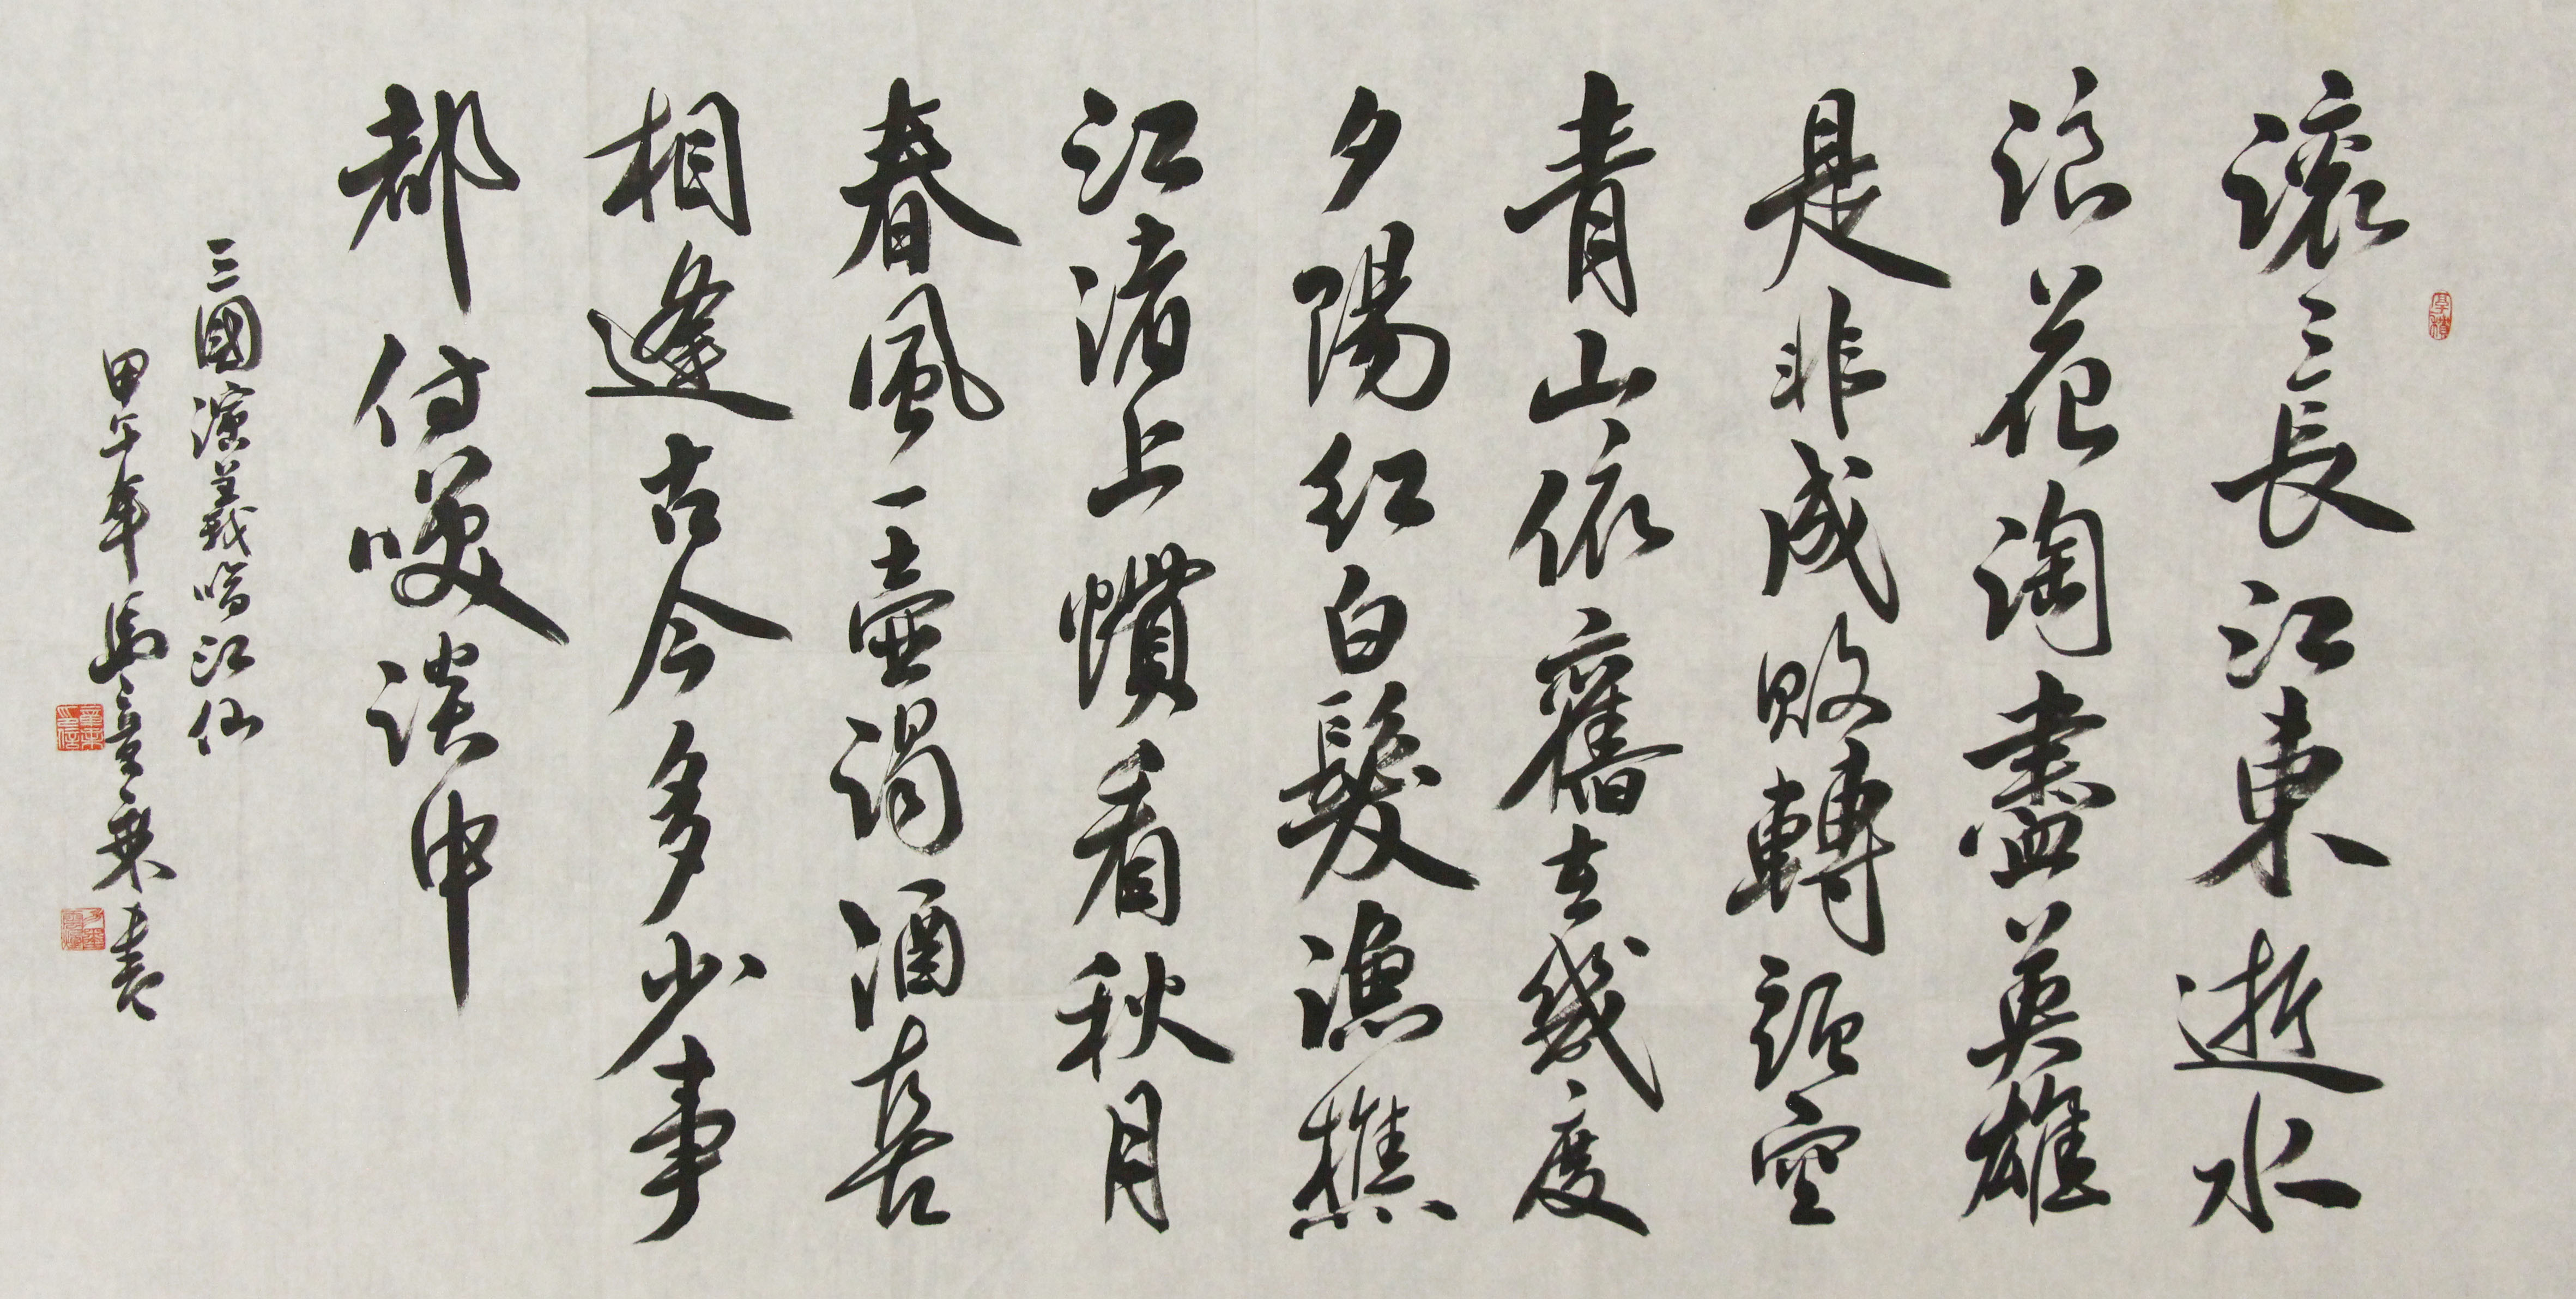 滾〻長江東逝水
浪花淘盡英雄
是非成敗轉頭空
青山依舊在幾度
夕陽紅白髮漁樵
江渚上慣看秋月
春風一壺濁酒喜
相逢古今多少事
都付咲談中
三國演義臨江仙
甲午年馬童秉書